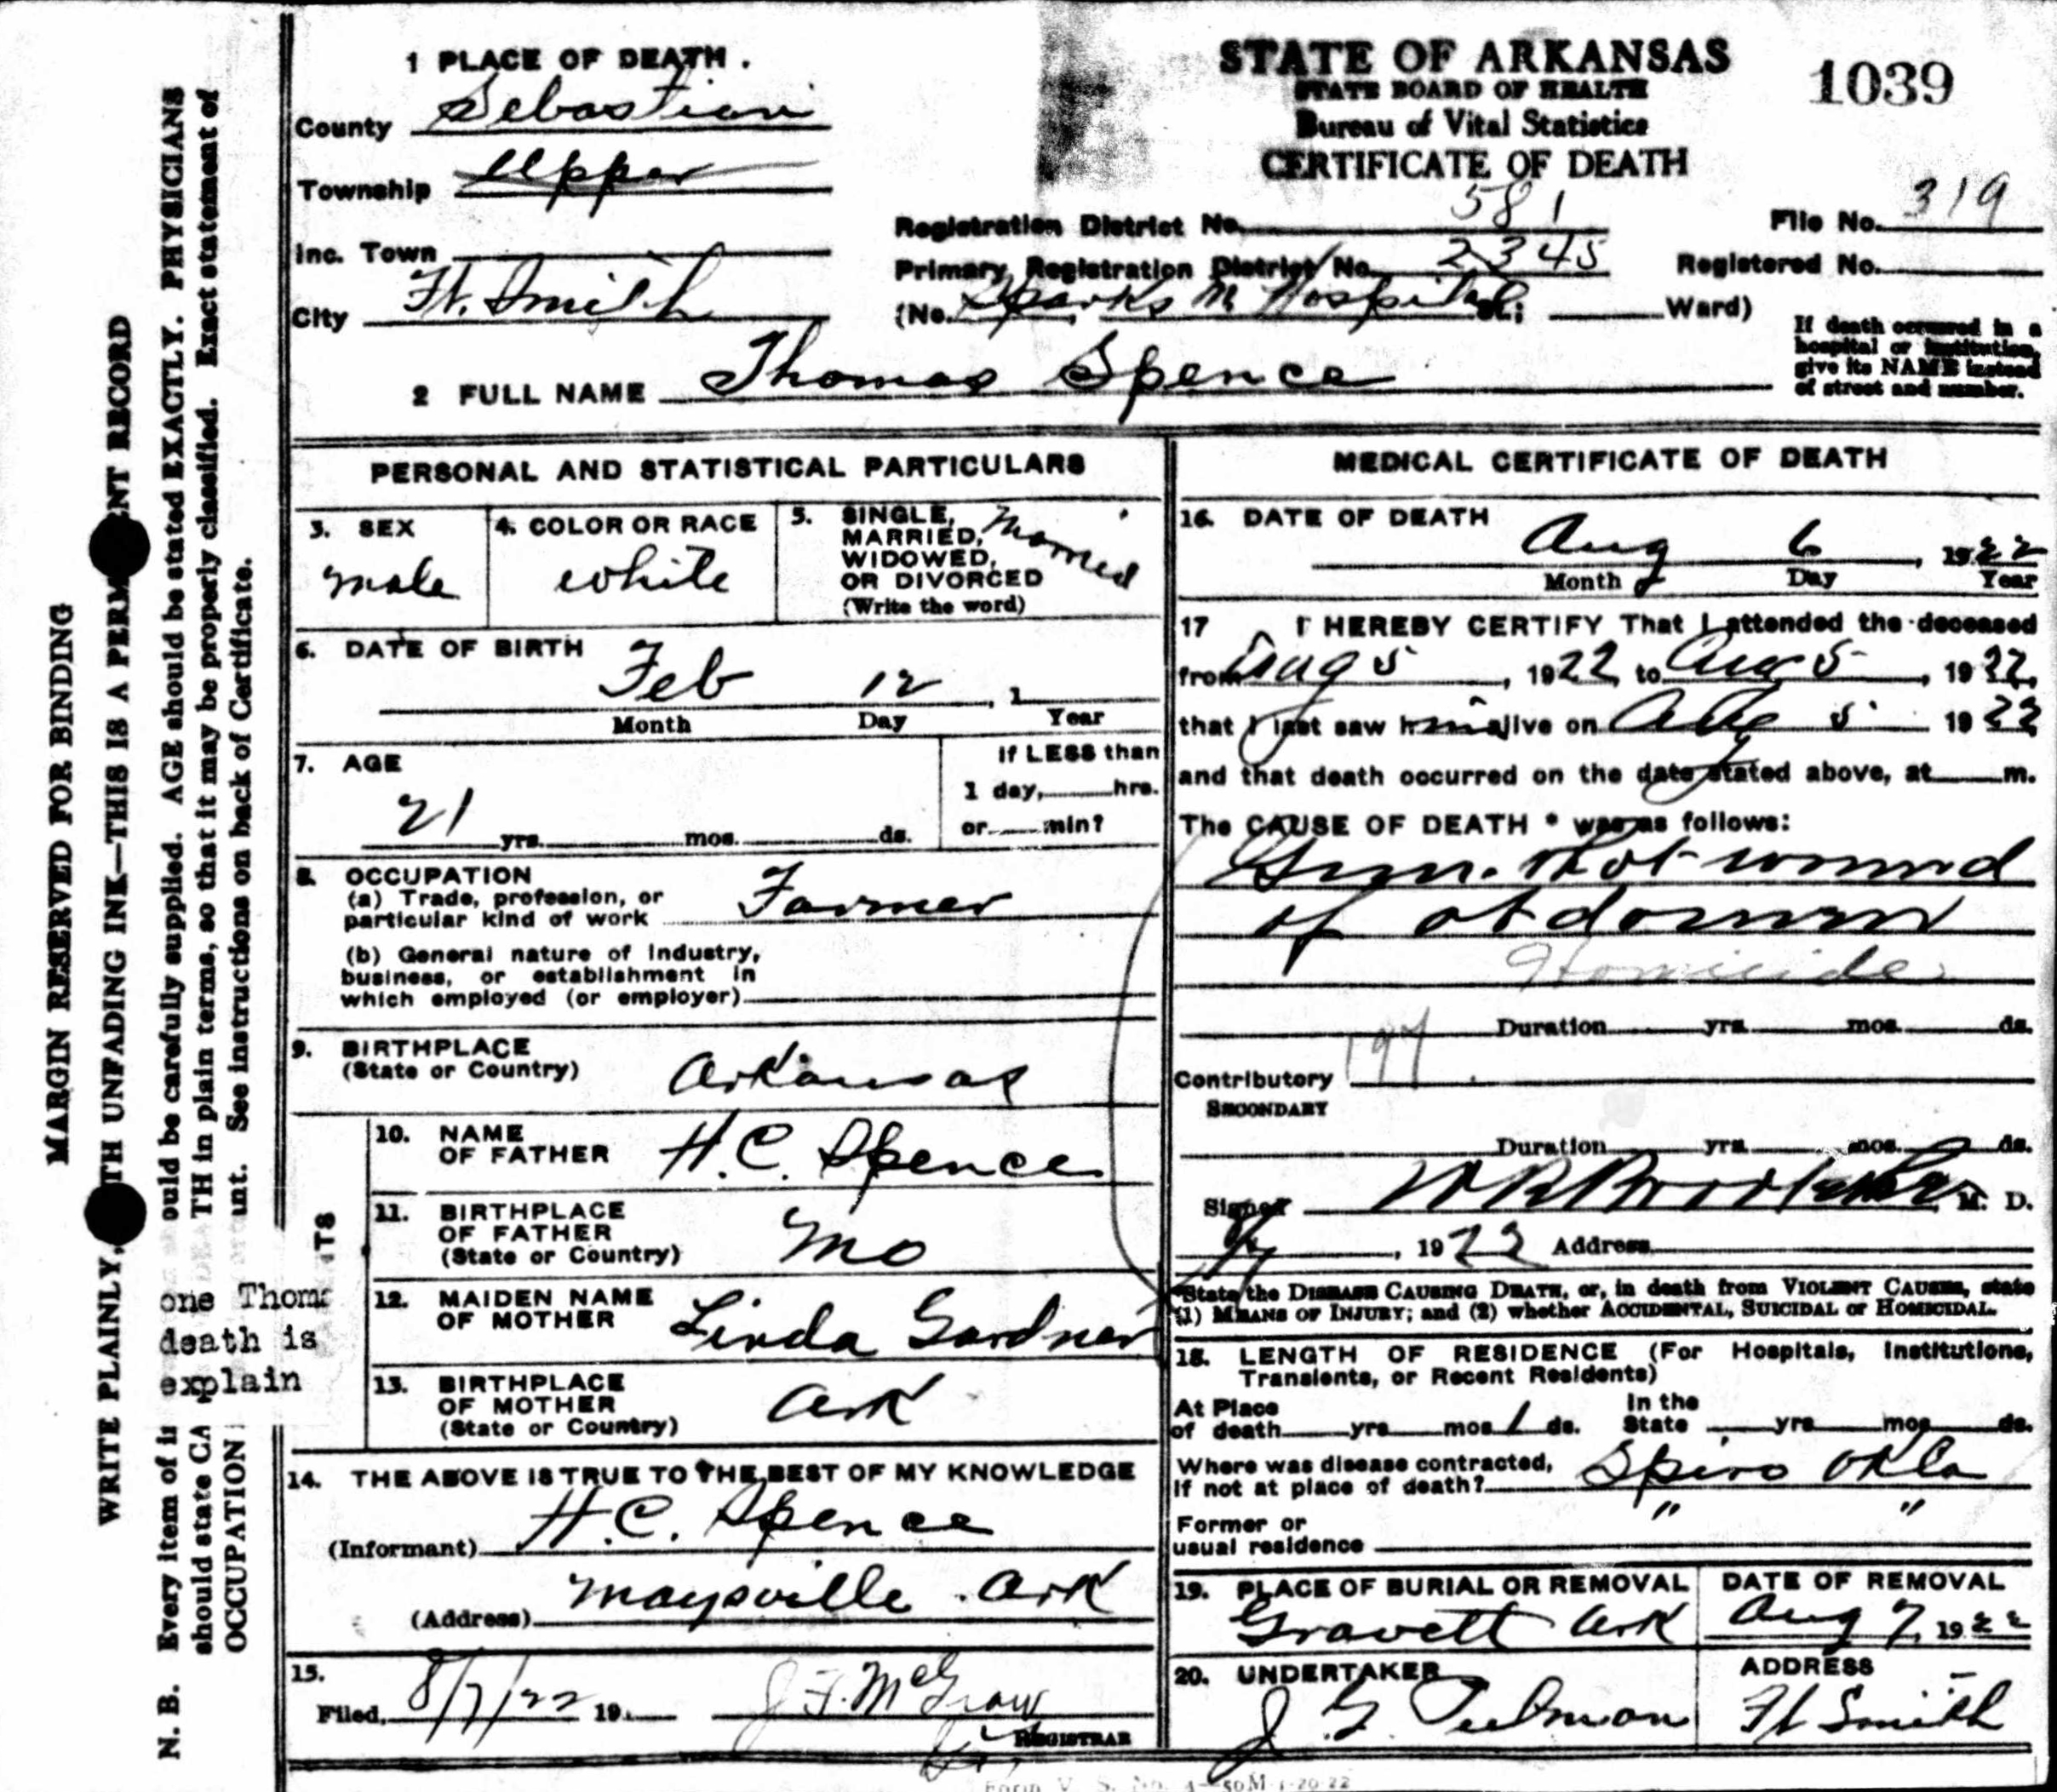 1 PLACE OF DEATH.
County Sebastian
Township Upper
Inc. Town
City Ft. Smith
STATE OF ARKANSAS
STATE BOARD OF HEALTH
Bureau of Vital Statistics
CERTIFICATE OF DEATH
1039
Registration District No. 581
File No. 319
Primary Registration District No. 2345
Registered No.
(No. Sparks M Hospital St.; Ward)
If death occurred in a
hospital or institution,
give its NAME instead
of street and number.
2 FULL NAME Thomas Spence
PERSONAL AND STATISTICAL PARTICULARS
3. SEX
male
4. COLOR OR RACE
white
5. SINGLE,
MARRIED,
WIDOWED,
OR DIVORCED
(Write the word)
Married
6. DATE OF BIRTH
Feb 12, 1
Month Day Year
7. AGE
21 yrs. mos. ds.
If LESS than
1 day, hrs.
or min?
8. OCCUPATION
(a) Trade, profession, or
particular kind of work Farmer
(b) General nature of Industry,
business, or establishment in
which employed (or employer)
9. BIRTHPLACE
(State or Country) Arkansas
10. NAME
OF FATHER H.C. Spence
11. BIRTHPLACE
OF FATHER
(State or Country) Mo
12. MAIDEN NAME
OF MOTHER Linda Gardner
13. BIRTHPLACE
OF MOTHER
(State or Country) Ark
14. THE ABOVE IS TRUE TO THE BEST OF MY KNOWLEDGE
(Informant) H.C. Spence
(Address) Maysville Ark
15.
Filed, 8/7/22 19 J.F. McGraw
REGISTRAR
MEDICAL CERTIFICATE OF DEATH
16. DATE OF DEATH
Aug 6, 1922
Month Day Year
17 I HEREBY CERTIFY That I attended the deceased
from Aug 5, 1922, to Aug 5, 1922,
that I last saw him alive on Aug 5 1922
and that death occurred on the date stated above, at m.
The CAUSE OF DEATH * was as follows:
Gun shot wound
of abdomen
Homicide
Duration yrs. mos. ds.
197
Contributory
SECONDARY
Duration yrs. mos. ds.
Signed W R Brooksher M. D.
, 1922 Address
*State the DISEASE CAUSING DEATH, or, in death from VIOLENT CAUSES, state
(1) MEANS OF INJURY; and (2) whether ACCIDENTAL, SUICIDAL or HOMICIDAL.
18. LENGTH OF RESIDENCE (For Hospitals, Institutions,
Transients, or Recent Residents)
At Place
of death yrs mos 1 ds.
In the
State yrs mos ds.
Where was disease contracted,
if not at place of death? Spiro Okla
Former or
usual residence " "
19. PLACE OF BURIAL OR REMOVAL
Gravett Ark
DATE OF REMOVAL
Aug 7, 1922
20. UNDERTAKER
J. G. Putman
ADDRESS
Ft Smith
Form V. S. No. 4—50M-1-20-22
MARGIN RESERVED FOR BINDING
WRITE PLAINLY, TH UNFADING INK—THIS IS A PERM NT RECORD
N. B. Every item of i ould be carefully supplied. AGE should be stated EXACTLY. PHYSICIANS
should state CA TH in plain terms, so that it may be properly classified. Exact statement of
OCCUPATION unt. See instructions on back of Certificate.
NTS
one Thoma
death is
explain